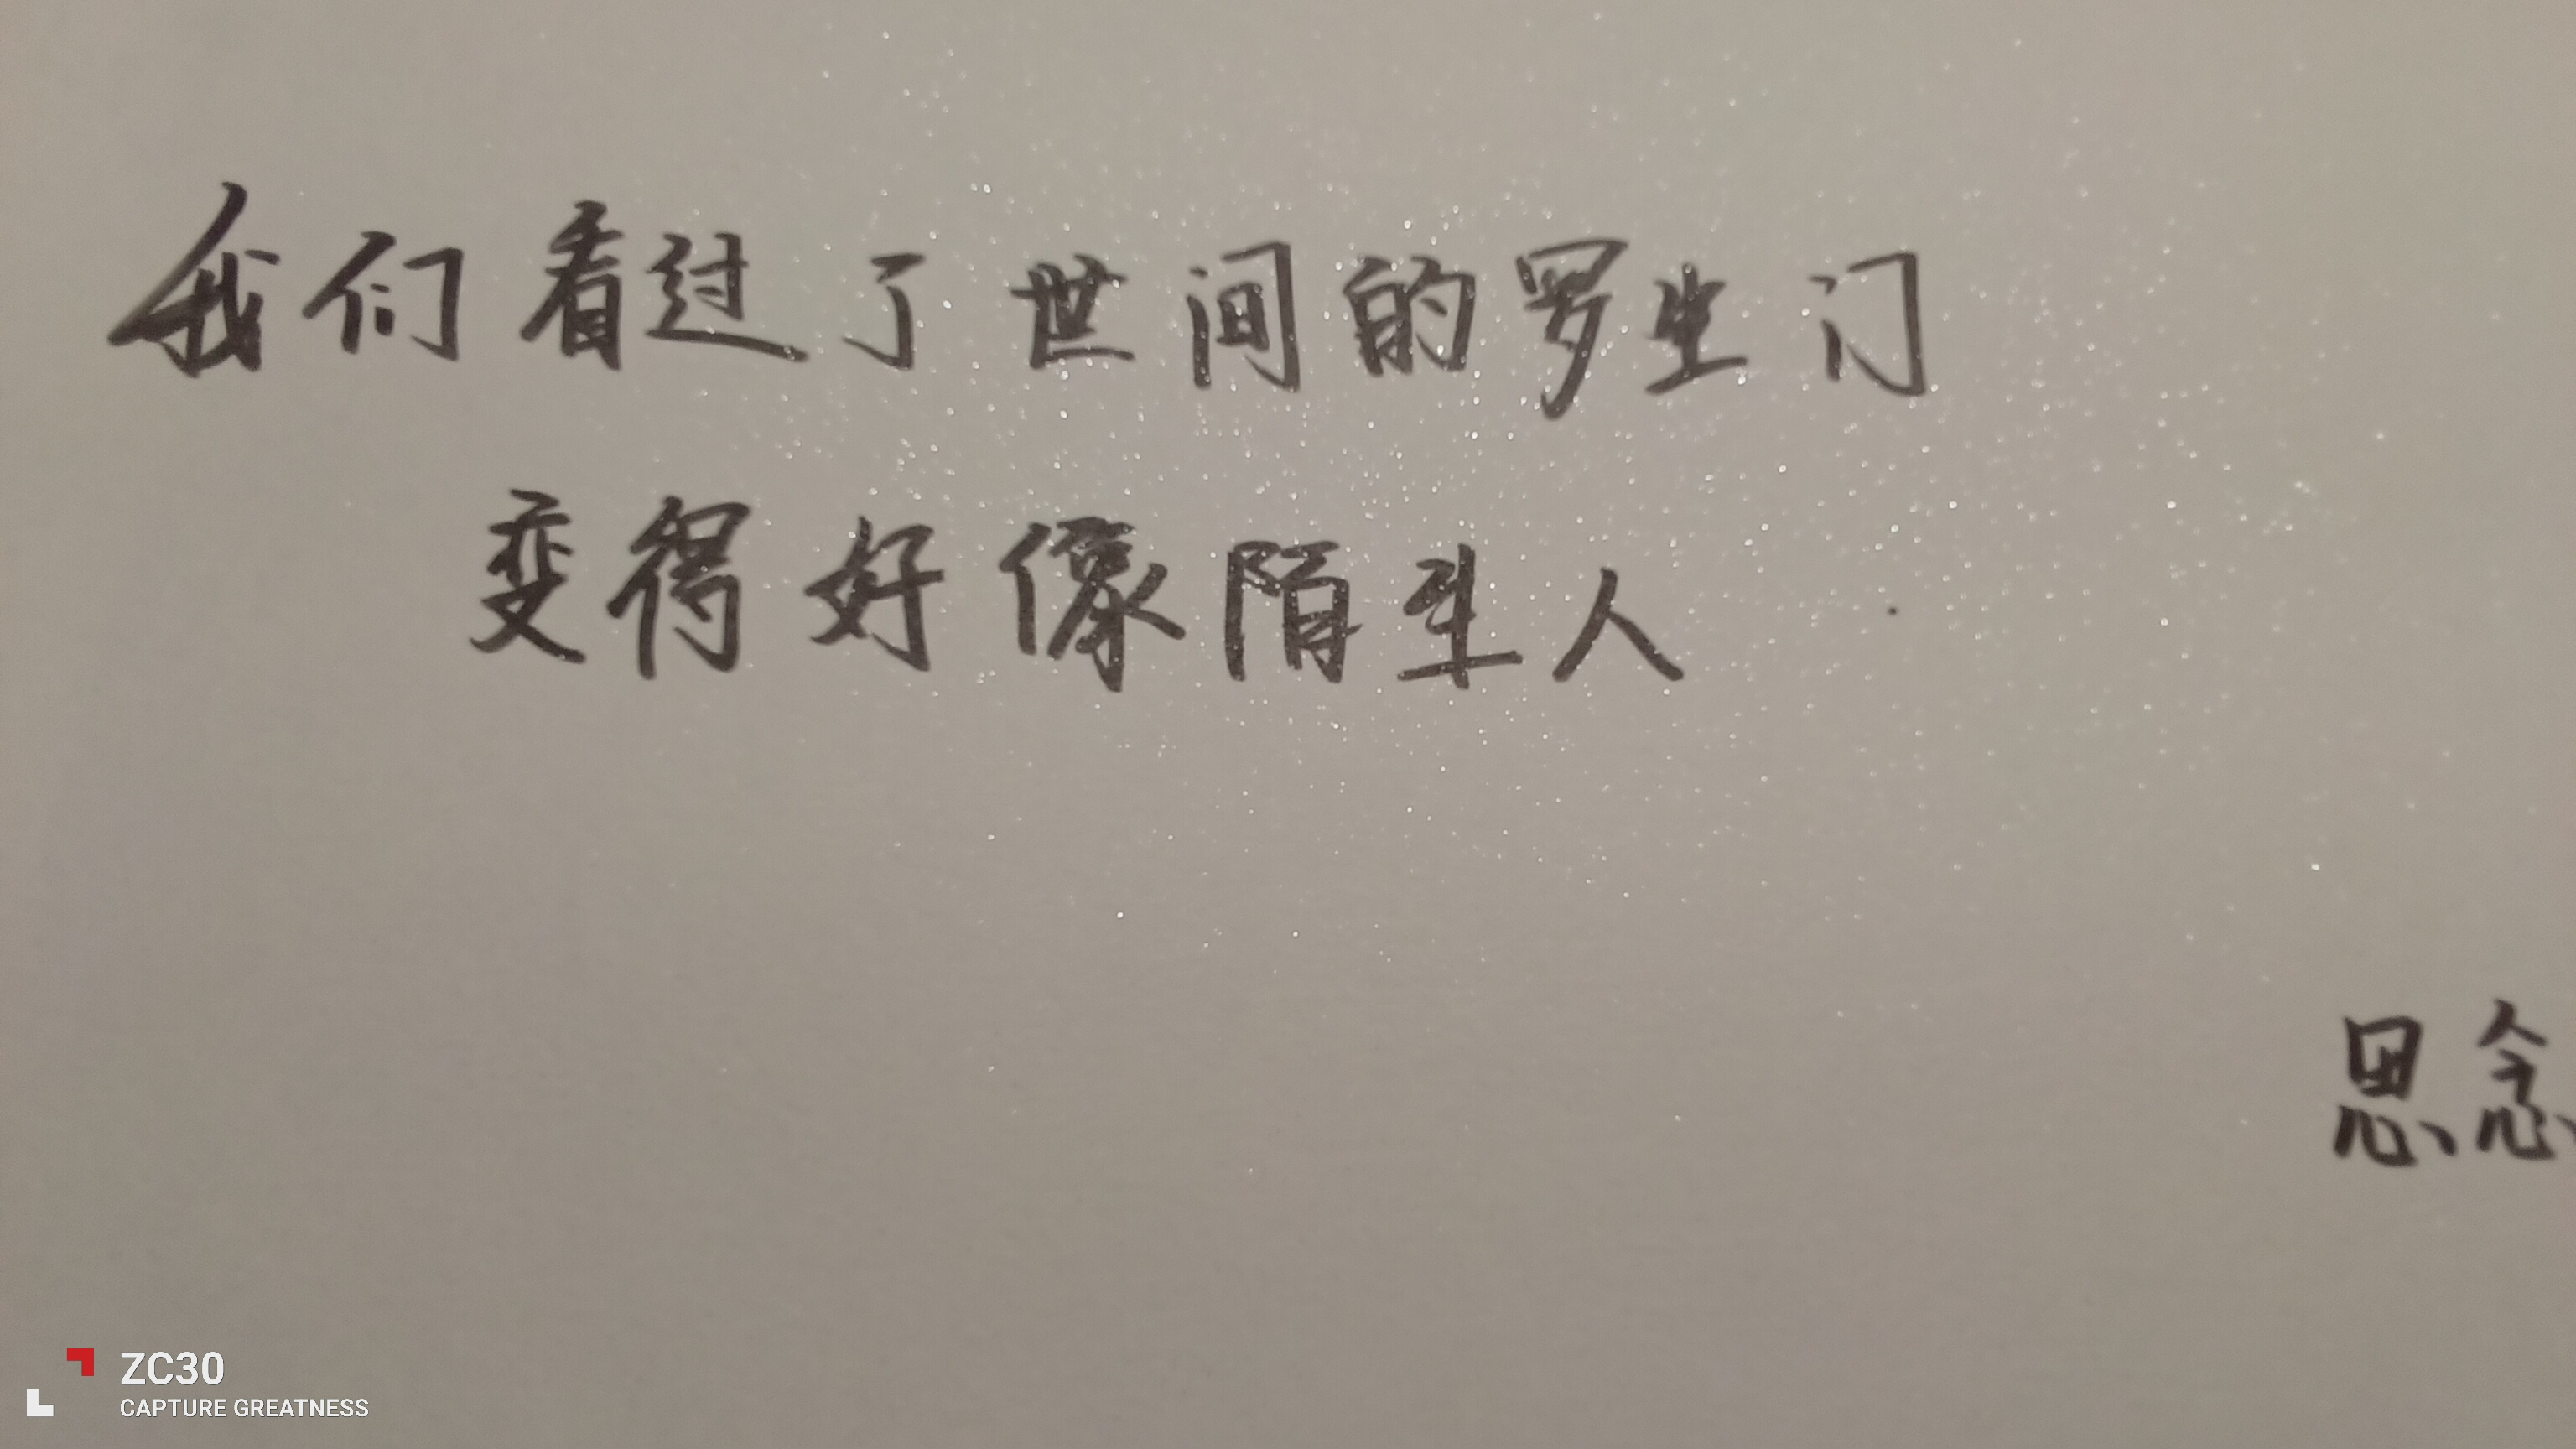 我们看过了世间的罗生门
变得好像陌生人
思念
ZC30
CAPTURE GREATNESS